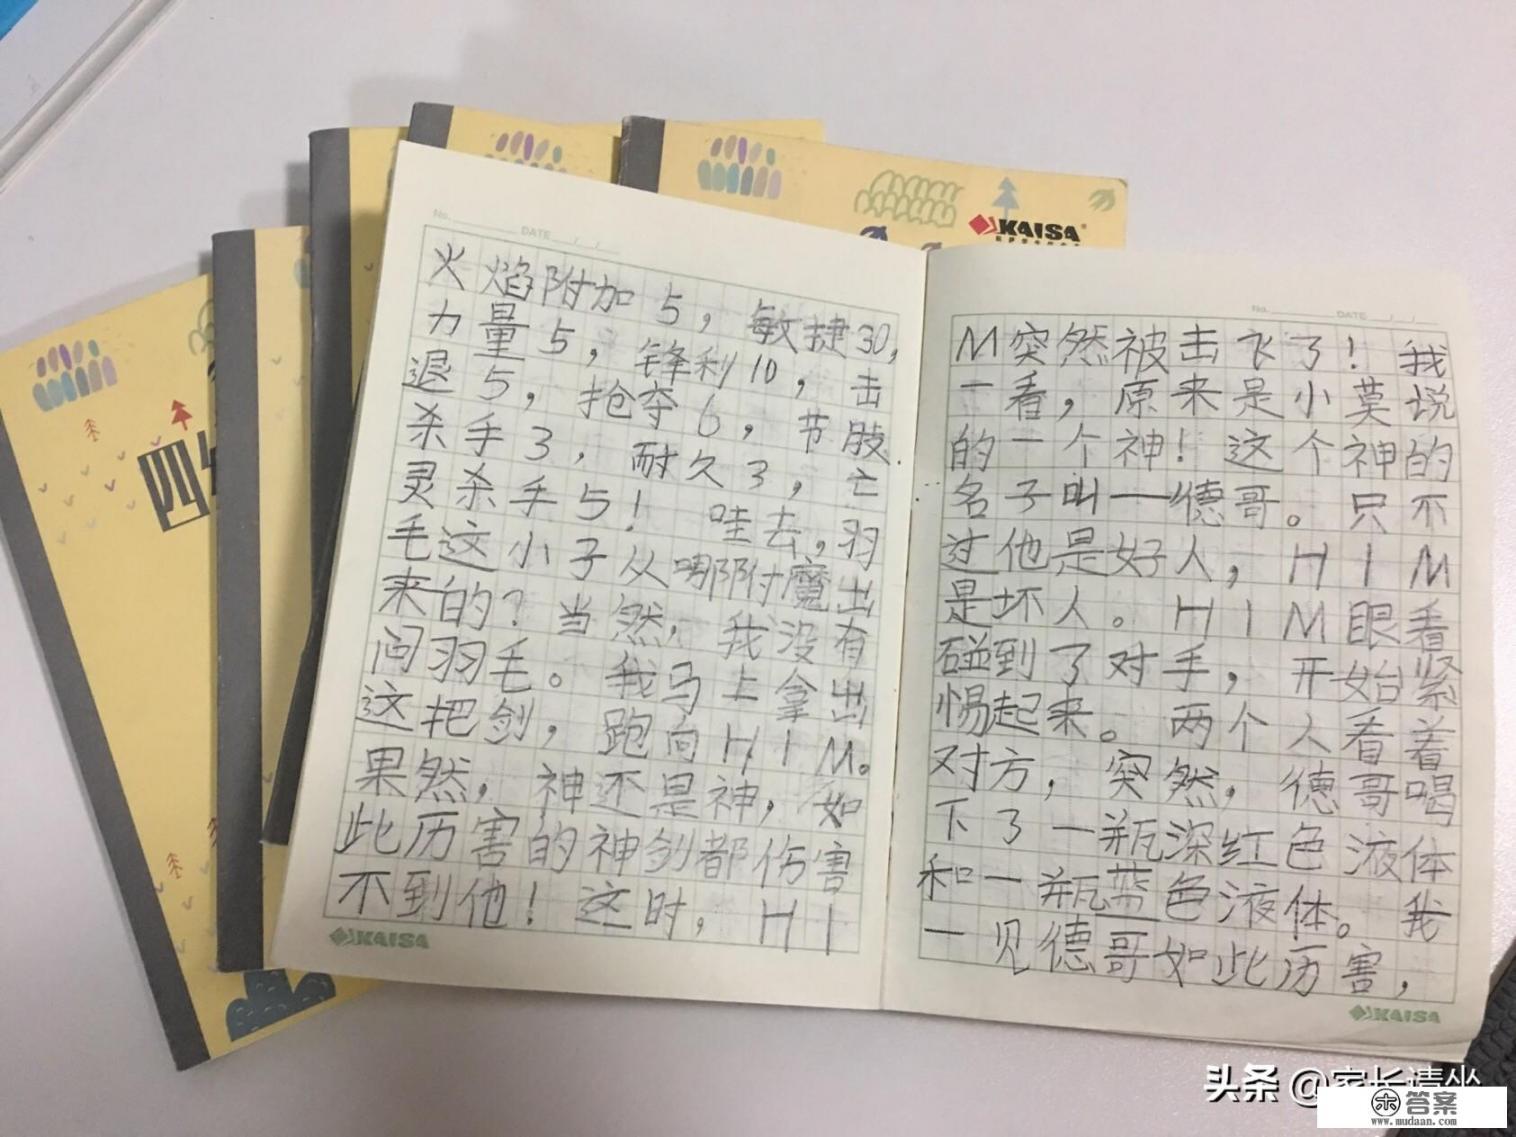 No. DATE
火焰附加5，敏捷30，
力量5，锋利10，击
退5，抢夺6，节肢
杀手3，耐久3，亡
灵杀手5！哇去，羽
毛这小子从哪附魔出
来的？当然，我没有
问羽毛。我马上拿出
这把剑，跑向HIM。
果然，神还是神，如
此厉害的神剑都伤害
不到他！这时，HI
KAISA
No. DATE
M突然被击飞了！我
一看，原来是小莫说
的一个神！这个神的
名子叫一德哥。只不
过他是好人，HIM
是坏人。HIM眼看
碰到了对手，开始紧
惕起来。两个人看着
对方，突然，德哥喝
下了一瓶深红色液体
和一瓶蓝色液体。我
一见德哥如此厉害，
KAISA
KAISA
四
头条 @家长请坐
答案
www.mudaan.com